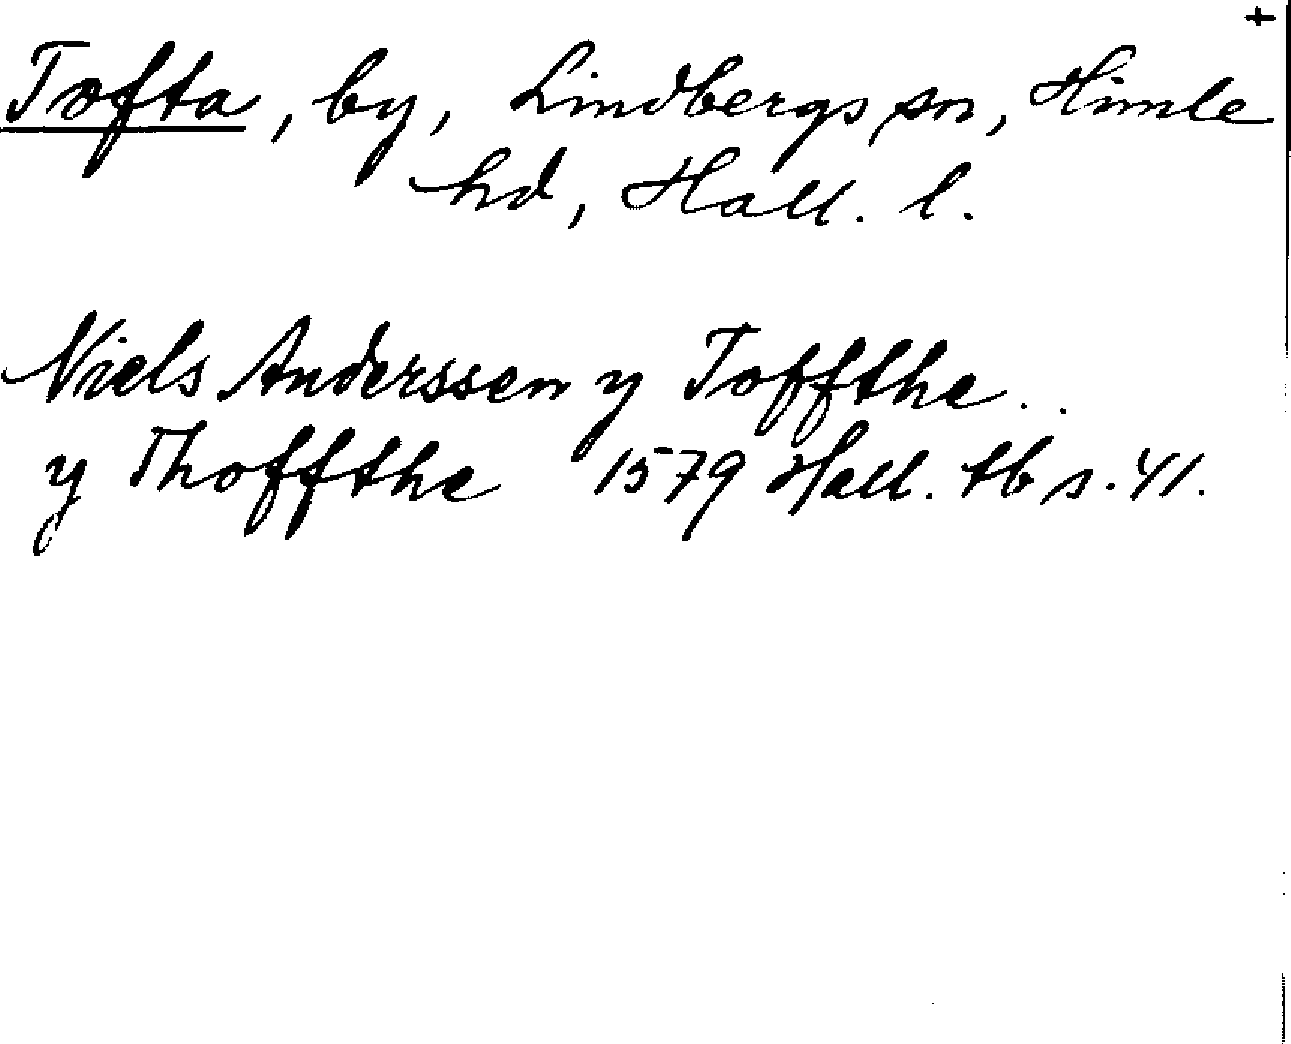 +
Tofta, by, Lindbergs sn, Himle
hd, Hall. l.
Niels Anderssen y Toffthe..
y Thoffthe 1579 Hall. tb s. 41.